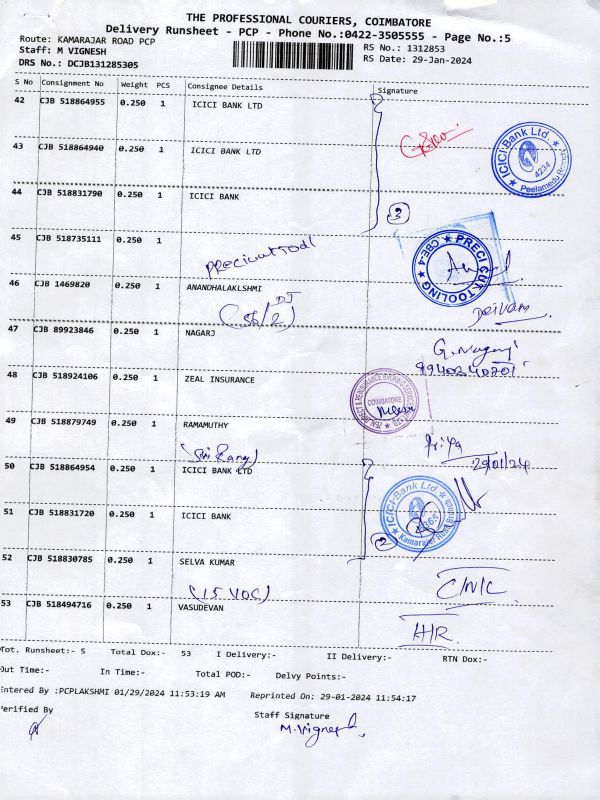 THE PROFESSIONAL COURIERS, COIMBATORE
Delivery Runsheet - PCP - Phone No.:0422-3505555 - Page No.:5
Route: KAMARAJAR ROAD PCP
Staff: M VIGNESH
DRS No.: DCJB131285305
RS No.: 1312853
RS Date: 29-Jan-2024
S No Consignment No Weight PCS Consignee Details Signature
42 CJB 518864955 0.250 1 ICICI BANK LTD
43 CJB 518864940 0.250 1 ICICI BANK LTD
ICICI Bank Ltd. 4234 Peelamedu Branch
44 CJB 518831790 0.250 1 ICICI BANK
3
45 CJB 518735111 0.250 1
PRECI CUT TOOLING CBE-4
46 CJB 1469820 0.250 1 ANANDHALAKLSHMI
47 CJB 89923846 0.250 1 NAGARJ
48 CJB 518924106 0.250 1 ZEAL INSURANCE
COIMBATORE
49 CJB 518879749 0.250 1 RAMAMUTHY
29/01/24
50 CJB 518864954 0.250 1 ICICI BANK LTD
ICICI Bank Ltd. Kamarajar Road Branch
51 CJB 518831720 0.250 1 ICICI BANK
2
52 CJB 518830785 0.250 1 SELVA KUMAR
(15 VOC)
53 CJB 518494716 0.250 1 VASUDEVAN
Tot. Runsheet:- 5 Total Dox:- 53 I Delivery:- II Delivery:- RTN Dox:-
Out Time:- In Time:- Total POD:- Delvy Points:-
Entered By :PCPLAKSHMI 01/29/2024 11:53:19 AM Reprinted On: 29-01-2024 11:54:17
Verified By Staff Signature
M.Vignesh